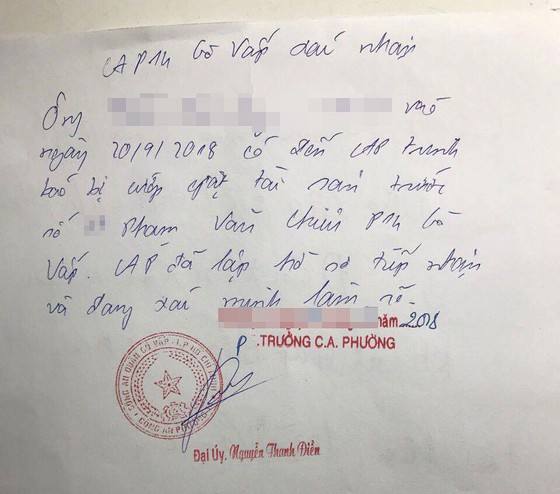 CAP14 Gò Vấp xác nhận
Ông vào
ngày 20/9/2018 có đến CAP trình
báo bị cướp giật tài sản trước
số Phạm Văn Chiêu P14 Gò
Vấp. CAP đã lập hồ sơ tiếp nhận
và đang xác minh làm rõ.
năm 2018
P .TRƯỞNG C.A. PHƯỜNG
CÔNG AN QUẬN GÒ VẤP - T.P HỒ CHÍ MINH
CÔNG AN PHƯỜNG
Đại Úy. Nguyễn Thanh Điền